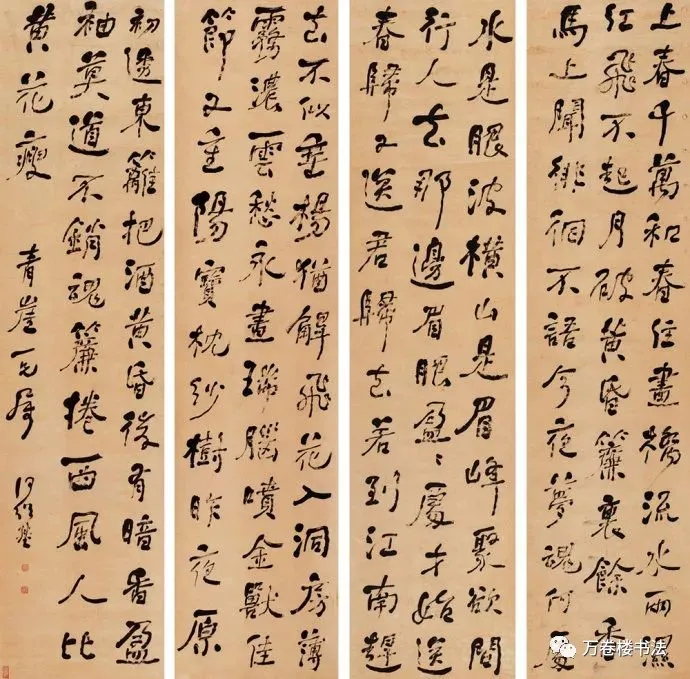 上春千萬和春住畫橋流水雨濕
紅飛不起月破黃昏簾裏餘香
馬上聞徘徊不語今夜夢魂何處
水是眼波橫山是眉峰聚欲問
行人去那邊眉眼盈〻處才始送
春歸又送君歸去若到江南趕
去不似垂楊猶解飛花入洞房薄
霧濃雲愁永晝瑞腦噴金獸佳
節又重陽寶枕紗樹昨夜原
初透東籬把酒黃昏後有暗香盈
袖莫道不銷魂簾捲西風人比
黃花瘦
青崖屬
何紹基
万卷楼书法